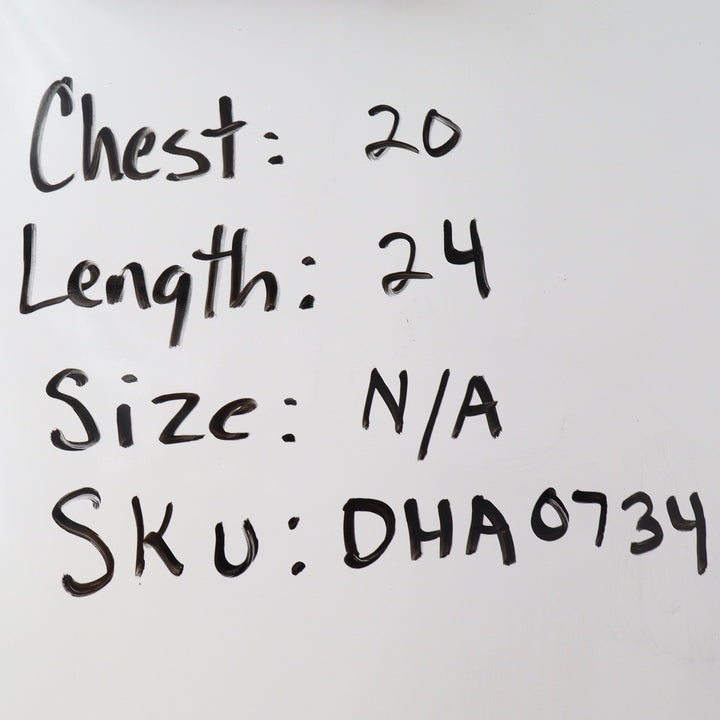 Chest: 20
Length: 24
Size: N/A
SKU: DHA0734